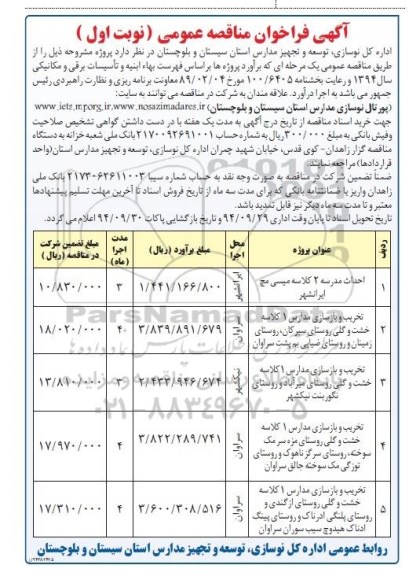 آگهی فراخوان مناقصه عمومی ( نوبت اول )
اداره کل نوسازی، توسعه و تجهیز مدارس استان سیستان و بلوچستان در نظر دارد پروژه مشروحه ذیل را از
طریق مناقصه عمومی یک مرحله ای که برآورد پروژه ها براساس فهرست بهاء ابنیه و تأسیسات برقی و مکانیکی
سال ۱۳۹۴ و رعایت بخشنامه ۱۰۰/۶۴۰۵ مورخ ۸۹/۰۲/۰۴ معاونت برنامه ریزی و نظارت راهبردی رئیس
جمهور می باشد به اجرا درآورد. علاقه مندان به شرکت در مناقصه می توانند به سایت:
(پورتال نوسازی مدارس استان سیستان و بلوچستان) www.ietz.mporg.ir، www.nosazimadares.ir
جهت خرید اسناد مناقصه از تاریخ درج آگهی به مدت یک هفته با در دست داشتن گواهی تشخیص صلاحیت
وفیش بانکی به مبلغ ۳۰۰/۰۰۰ ریال به شماره حساب ۲۱۷۰۰۹۲۶۹۱۰۰۱ بانک ملی شعبه خزانه به دستگاه
مناقصه گزار زاهدان- کوی قدس، خیابان شهید چمران اداره کل نوسازی، توسعه و تجهیز مدارس استان (واحد
قراردادها) مراجعه نمایند.
ضمناً تضمین شرکت در مناقصه به صورت وجه نقد به حساب شماره سیبا ۲۱۷۳۰۶۲۶۱۱۰۰۳ بانک ملی
زاهدان واریز یا ضمانتنامه بانکی که برای مدت سه ماه از تاریخ فروش اسناد تا آخرین مهلت تسلیم پیشنهادها
معتبر و تا مدت سه ماه دیگر نیز قابل تمدید باشد.
تاریخ تحویل اسناد تا پایان وقت اداری ۹۴/۰۹/۲۹ و تاریخ بازگشایی پاکات ۹۴/۰۹/۳۰ اعلام می گردد.
ردیف عنوان پروژه محل اجرا مبلغ برآورد (ریال) مدت اجرا (ماه) مبلغ تضمین شرکت در مناقصه (ریال)
۱ احداث مدرسه ۲ کلاسه میسی مچ ایرانشهر ایرانشهر ۱/۴۴۱/۱۶۶/۸۰۰ ۳ ۱۰/۸۳۰/۰۰۰
۲ تخریب و بازسازی مدارس ۱ کلاسه
خشت و گلی روستای سیرکان، روستای
زمینان و روستای ضیایی بم پشت سراوان سراوان ۳/۸۳۹/۸۹۱/۶۷۹ ۴ ۱۸/۰۲۰/۰۰۰
۳ تخریب و بازسازی مدارس ۱ کلاسه
خشت و گلی روستای میرآباد و روستای
نگور بنت نیکشهر نیکشهر ۲/۴۳۳/۹۴۶/۶۷۴ ۳ ۱۳/۸۱۰/۰۰۰
۴ تخریب و بازسازی مدارس ۱ کلاسه
خشت و گلی روستای مزه سر مک
سوخته، روستای سرگز ناهوک و روستای
توزگی مک سوخته جالق سراوان سراوان ۳/۸۲۲/۲۸۹/۷۴۱ ۴ ۱۷/۹۷۰/۰۰۰
۵ تخریب و بازسازی مدارس ۱ کلاسه
خشت و گلی روستای ازگندی و
روستای پلنگی ادرناک و روستای پینگ
ادناک هیدوچ سیب سوران سراوان سراوان ۳/۶۰۰/۳۰۸/۵۱۶ ۴ ۱۷/۳۱۰/۰۰۰
ParsNamadData
۰۲۱-۸۸۳۴۹۶۷۰-۵
روابط عمومی اداره کل نوسازی، توسعه و تجهیز مدارس استان سیستان و بلوچستان